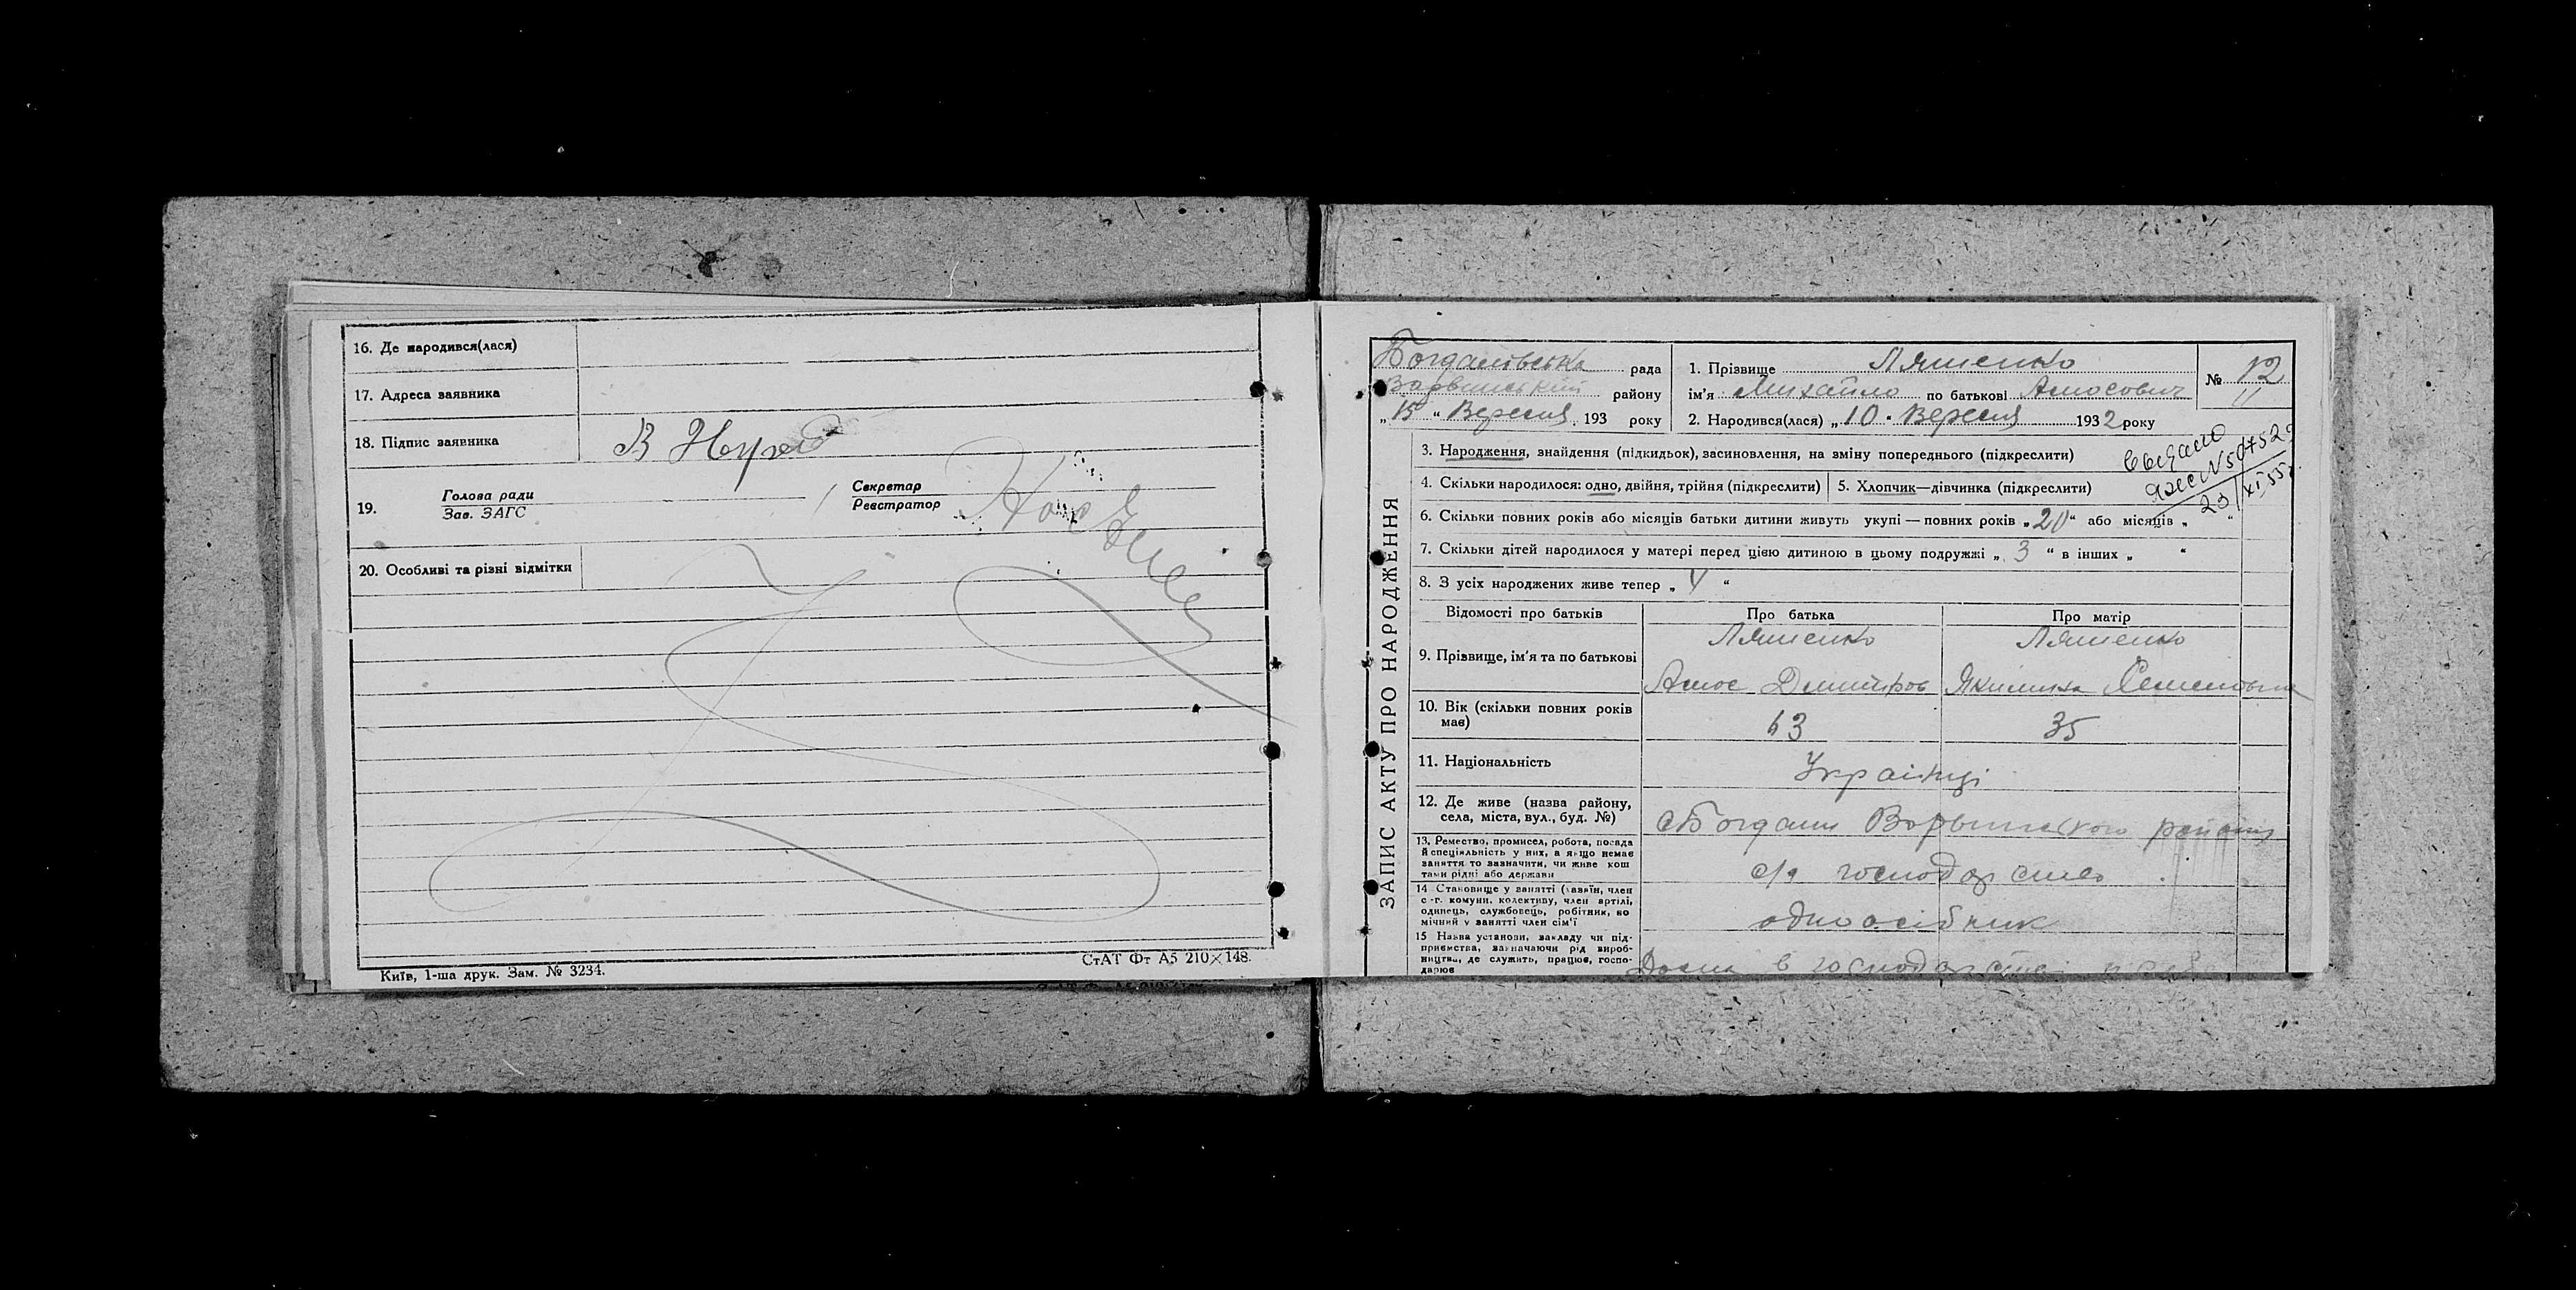 16. Де народився(лася)
17. Адреса заявника
18. Підпис заявника
19. Голова ради
Зав. ЗАГС
Секретар
Реєстратор
20. Особливі та різні відмітки
Київ, 1-ша друк. Зам. № 3234.
СтАТ Фт А5 210×148.
ЗАПИС АКТУ ПРО НАРОДЖЕННЯ
Богданівська рада
Варвинський району
„15“ Вересня 193 року
1. Прізвище Ляшенко
ім'я Михайло по батькові Амосович
№ 12
11
2. Народився(лася) „10. Вересня 1932 року
3. Народження, знайдення (підкидьок), засиновлення, на зміну попереднього (підкреслити)
4. Скільки народилося: одно, двійня, трійня (підкреслити)
5. Хлопчик—дівчинка (підкреслити)
23/XI 55 г.
6. Скільки повних років або місяців батьки дитини живуть укупі — повних років „20“ або місяців „ “
7. Скільки дітей народилося у матері перед цією дитиною в цьому подружжі „ 3 “ в інших „ “
8. З усіх народжених живе тепер „ 4 “
Відомості про батьків
Про батька
Про матір
9. Прізвище, ім'я та по батькові
Ляшенко
Амос Дмитров
Ляшенко
Якилина Семеновна
10. Вік (скільки повних років
має)
35
11. Національність
Українці
12. Де живе (назва району,
села, міста, вул., буд. №)
с Богдани Варвинского району
13. Ремество, промисел, робота, посада
й спеціяльність у них, а якщо немає
заняття то зазначити, чи живе кош
тами рідні або держави
с/г господарство
14 Становище у занятті (хазяїн, член
с.-г. комуни, колективу, член артілі,
одинець, службовець, робітник, по
мічний у занятті член сім'ї
одноосібник
15 Назва установи, закладу чи під-
приємства, зазначаючи рід вироб-
ництва, де служить, працює, госпо-
дарює
в господарстві